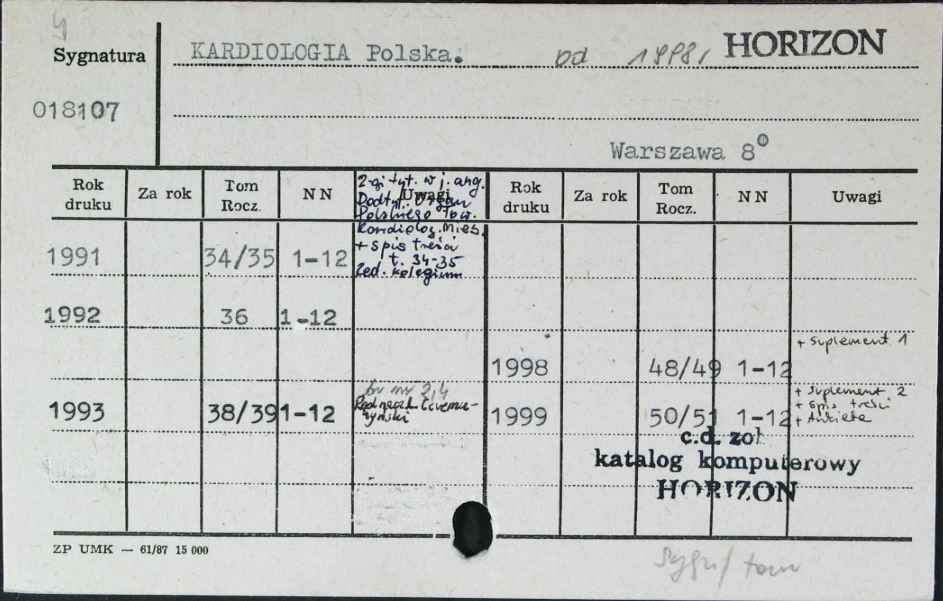 4
Sygnatura
KARDIOLOGIA Polska. od 1998, HORIZON
018107
Warszawa 8°
Rok druku Za rok Tom Rocz. NN Uwagi Rok druku Za rok Tom Rocz. NN Uwagi
2-gi tyt. w j. ang.
Dodtyt. Organ
Polskiego Tow.
Kardiolog. Mies.
+ spis treści
t. 34-35
Red. kolegium
1991 34/35 1-12
1992 36 1-12
+ suplement 1
1998 48/49 1-12
br nr 2,4
Red nacz. L. Ceremu-
żyński
1993 38/39 1-12
+ suplement 2
+ spis treści
+ Ankieta
1999 50/51 1-12
c.d. zob
katalog komputerowy
HORIZON
ZP UMK — 61/87 15 000
Sygn/ tom